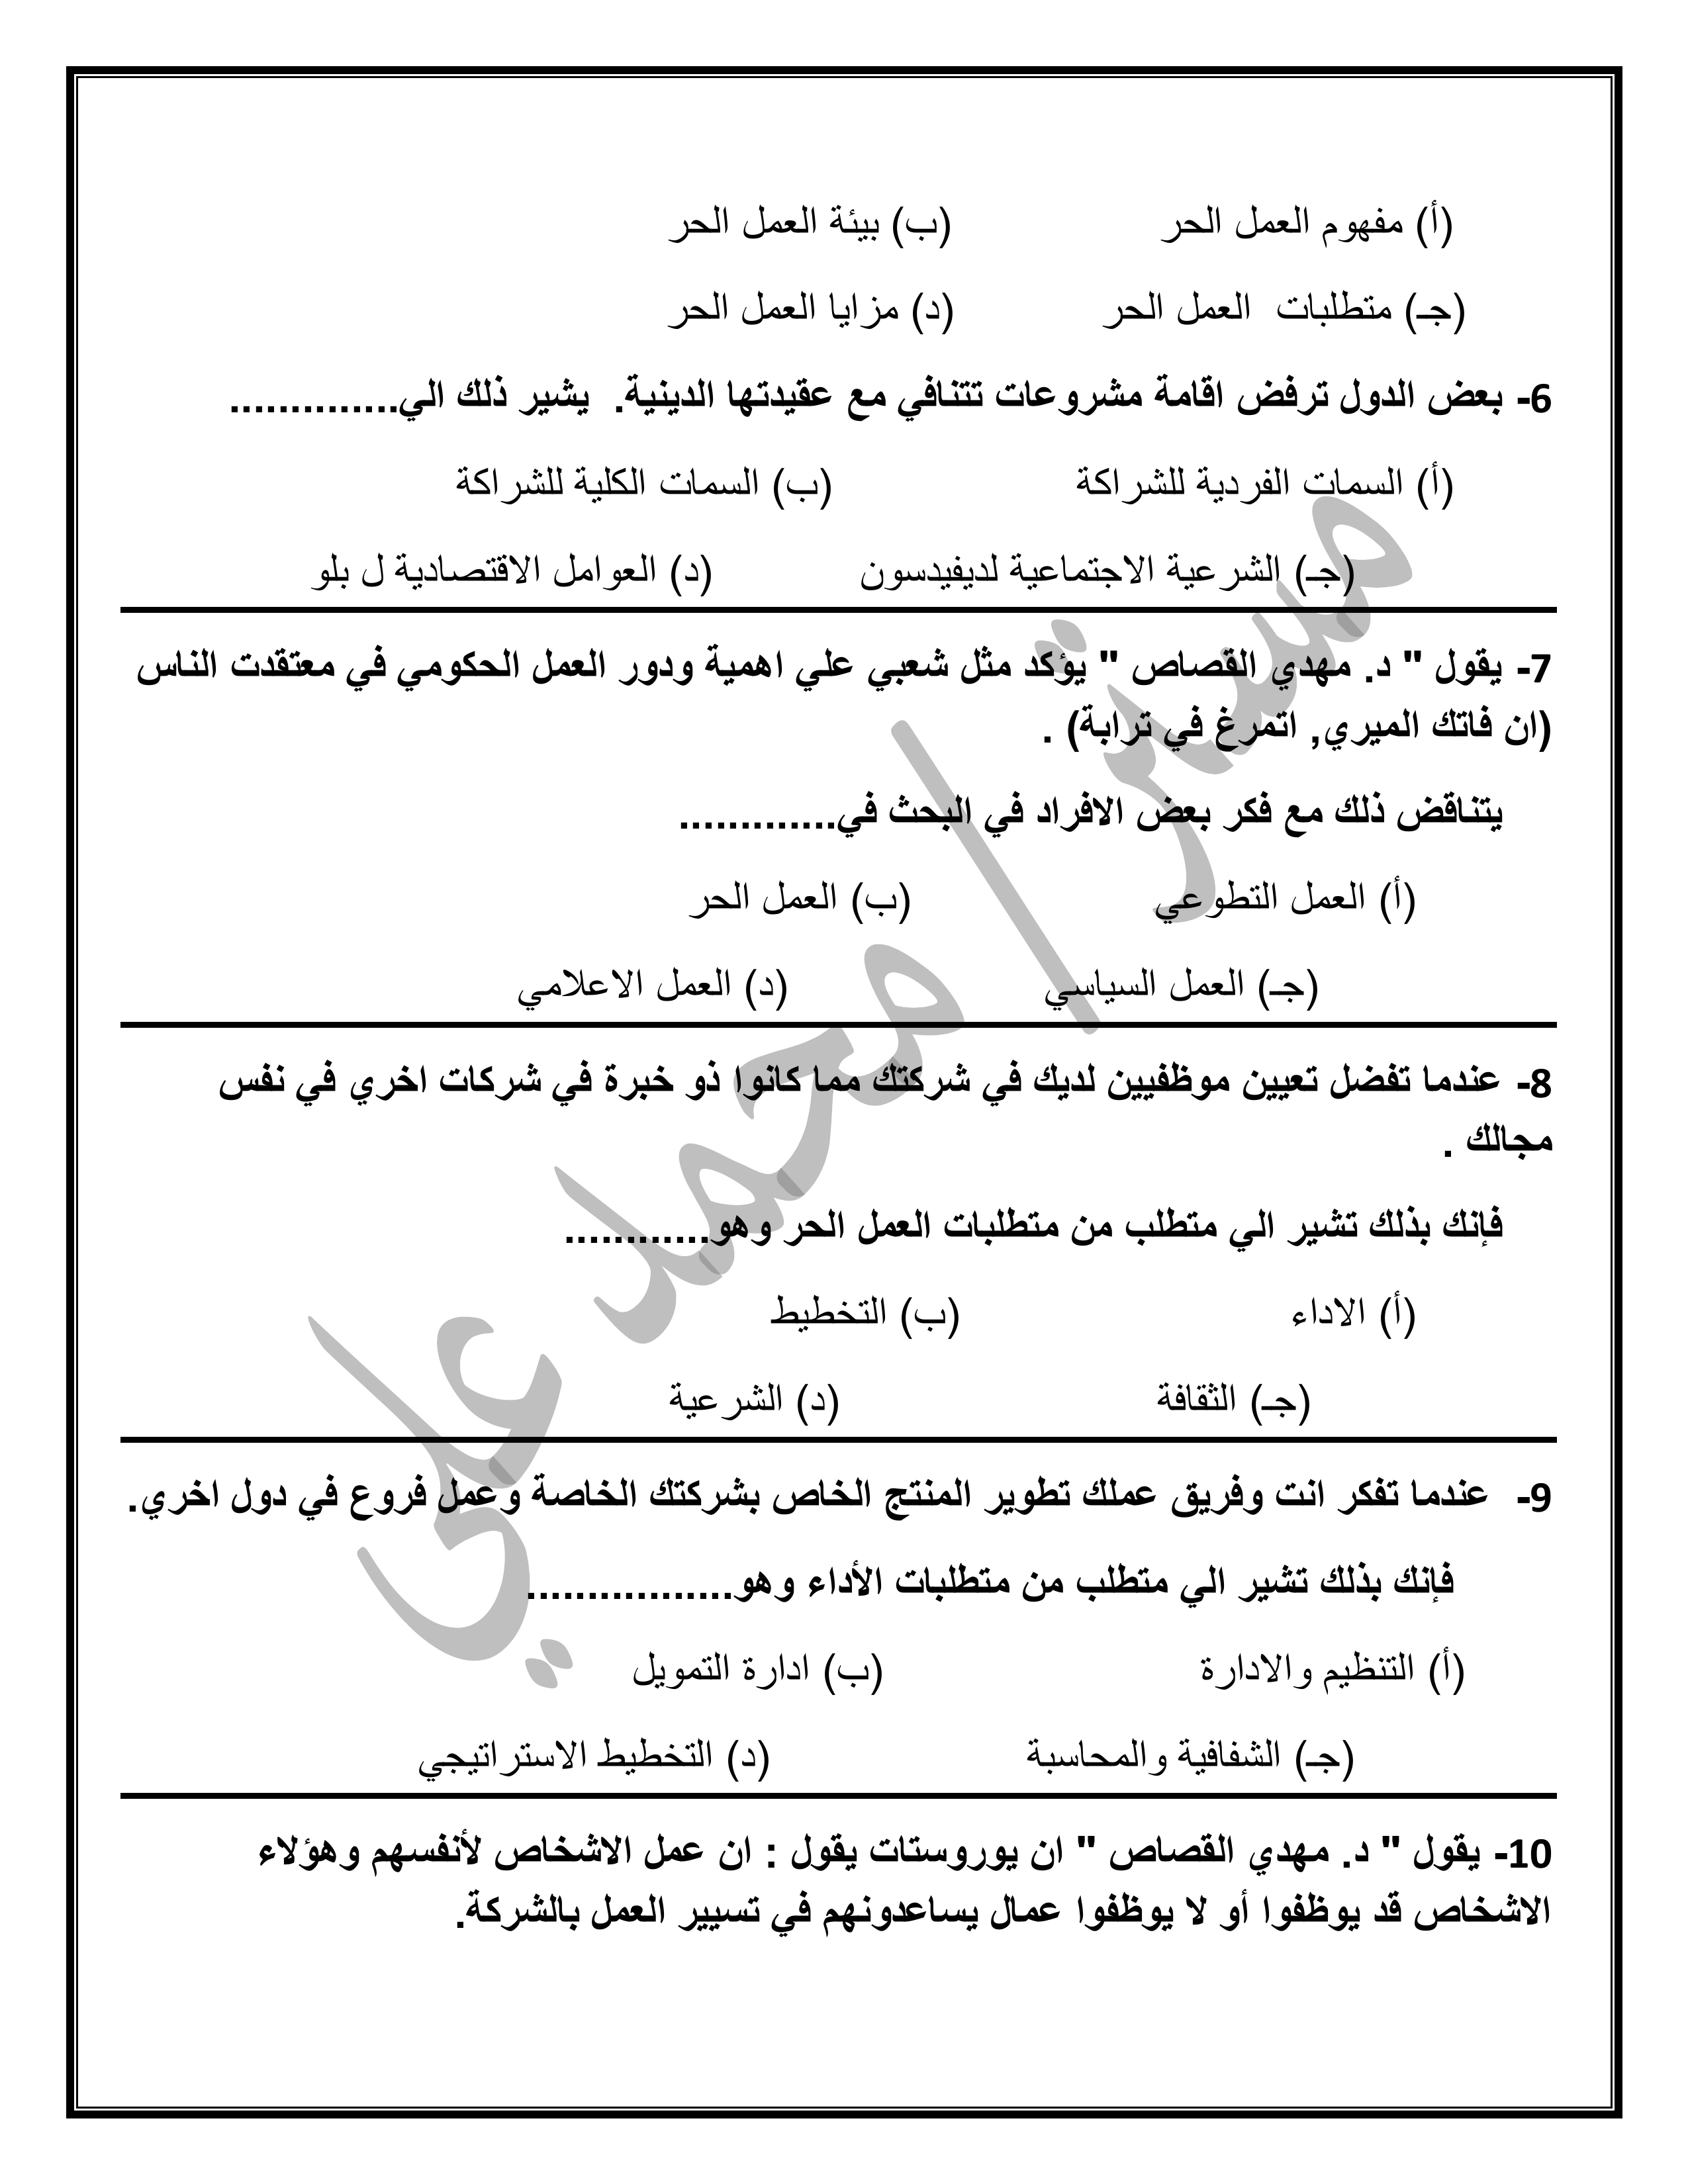 (أ) مفهوم العمل الحر (ب) بيئة العمل الحر
(جـ) متطلبات العمل الحر (د) مزايا العمل الحر
6- بعض الدول ترفض اقامة مشروعات تتنافي مع عقيدتها الدينية. يشير ذلك الي..............
(أ) السمات الفردية للشراكة (ب) السمات الكلية للشراكة
(جـ) الشرعية الاجتماعية لديفيدسون (د) العوامل الاقتصادية ل بلو
7- يقول " د. مهدي القصاص " يؤكد مثل شعبي علي اهمية ودور العمل الحكومي في معتقدت الناس
(ان فاتك الميري, اتمرغ في ترابة) .
يتناقض ذلك مع فكر بعض الافراد في البحث في.............
(أ) العمل التطوعي (ب) العمل الحر
(جـ) العمل السياسي (د) العمل الاعلامي
8- عندما تفضل تعيين موظفيين لديك في شركتك مما كانوا ذو خبرة في شركات اخري في نفس
مجالك .
فإنك بذلك تشير الي متطلب من متطلبات العمل الحر وهو............
(أ) الاداء (ب) التخطيط
(جـ) الثقافة (د) الشرعية
9- عندما تفكر انت وفريق عملك تطوير المنتج الخاص بشركتك الخاصة وعمل فروع في دول اخري.
فإنك بذلك تشير الي متطلب من متطلبات الأداء وهو.................
(أ) التنظيم والادارة (ب) ادارة التمويل
(جـ) الشفافية والمحاسبة (د) التخطيط الاستراتيجي
10- يقول " د. مهدي القصاص " ان يوروستات يقول : ان عمل الاشخاص لأنفسهم وهؤلاء
الاشخاص قد يوظفوا أو لا يوظفوا عمال يساعدونهم في تسيير العمل بالشركة.
مستر/ محمد علي